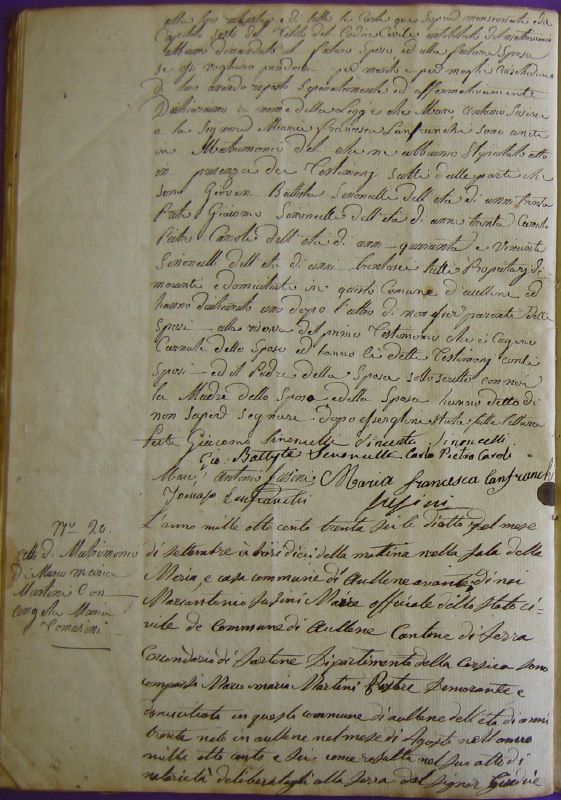 alla loro maestra e di tutte le carte qui sopra menzionate e del
Capitolo sesto del Titolo del Codice Civile intitolato del matrimonio
abbiamo domandato al futuro Sposo ed alla futura Sposa
se essi vogliono prendersi per marito e per moglie ciascheduno
di loro avendo risposto separatamente ed affermativamente
Dichiariamo a nome della Legge che Marc Antonio Susini
e la Signora Maria Francesca Lanfranchi sono uniti
in Matrimonio del che ne abbiamo Stipulato atto
in presenza dei Testimonj delle parti che
sono Giovan Battista Simonelli dell'età di anni trenta
Prete Giacomo Simonelli dell'età di anni trenta Carlo
Pietro dell'età di anni quaranta e Vincente
Simonelli dell'età di anni trentasei tutti Proprietarj di=
moranti e domiciliati in questo Comune d'aullene ed
hanno dichiarato uno dopo l'altro di non esser parenti delli
Sposi alla riserva del primo Testimonio che è Cugino
Carnale dello Sposo ed hanno li detti Testimonj con li
Sposi ed il Padre della Sposa sottoscritto con noi
la Madre dello Sposo e della Sposa hanno detto di
non saper segnare dopo essergliene stata fatta lettura
Prete Giacomo Simonelli Vincente Simoncelli
Gio Battista Simonelli Carlo Pietro
Marc' Antonio Susini Maria francesca Lanfranchi
Tomaso Lanfranchi Susini
N.º 20.
Atto di Matrimonio
di Marco maria
Martini Con
Maria
Tomasini
L'anno mille otto cento trenta sei li diciotto del mese
di settembre à ore dieci della matina nella sala della
Meria, e casa commune di Aullene avanti di noi
Marcantonio Susini Maire officiale dello Stato ci-
vile de Commune di Aullene Cantone di Serra
Circondario di Sartene Dipartimento della Corsica sono
comparsi Marco maria Martini Pastore Demorante e
domiciliato in questa commune di aullene dell'età di anni
trenta nato in aullene nel mese di Agosto nell'anno
mille otto cento e sei come resulta nel suo atto di
notorietà deliberatogli alla Serra dal Signor Giudice